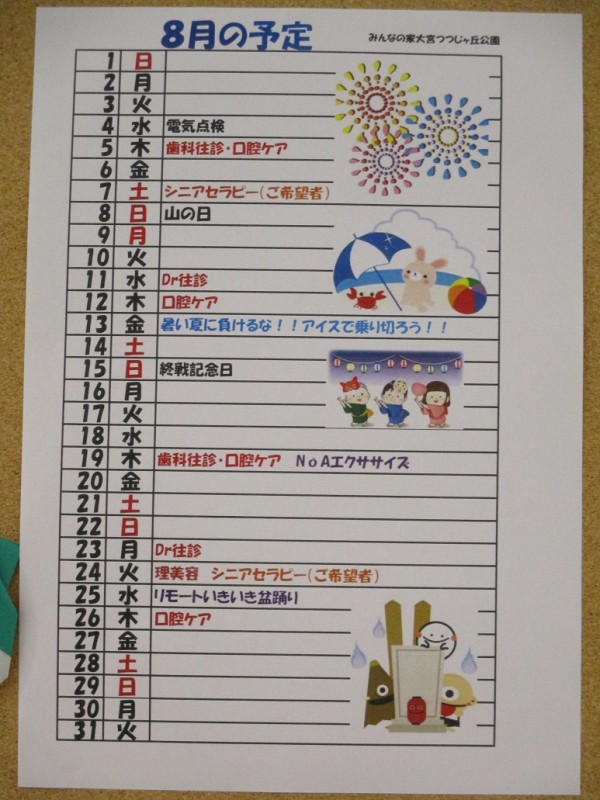 8月の予定
みんなの家大宮つつじヶ丘公園
1 日
2 月
3 火
4 水 電気点検
5 木 歯科往診・口腔ケア
6 金
7 土 シニアセラピー(ご希望者)
8 日 山の日
9 月
10 火
11 水 Dr往診
12 木 口腔ケア
13 金 暑い夏に負けるな!!アイスで乗り切ろう!!
14 土
15 日 終戦記念日
16 月
17 火
18 水
19 木 歯科往診・口腔ケア NoAエクササイズ
20 金
21 土
22 日
23 月 Dr往診
24 火 理美容 シニアセラピー(ご希望者)
25 水 リモートいきいき盆踊り
26 木 口腔ケア
27 金
28 土
29 日
30 月
31 火